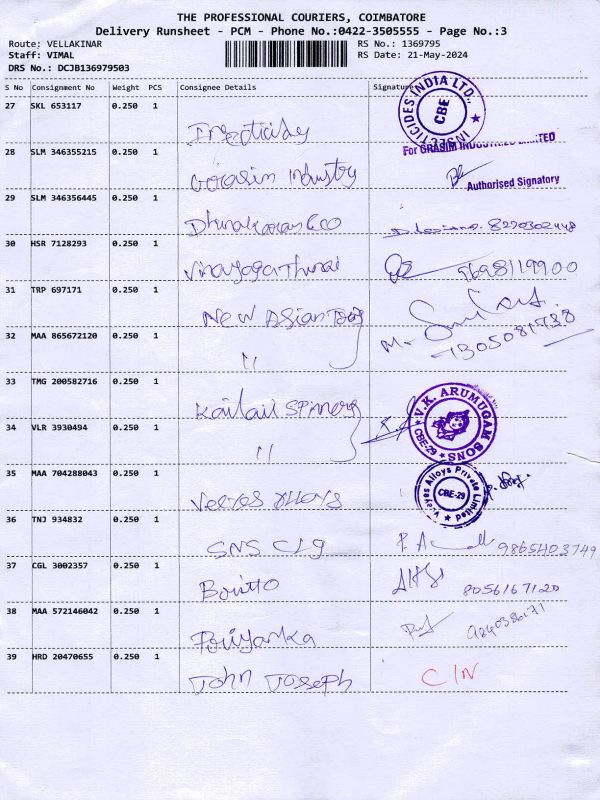 THE PROFESSIONAL COURIERS, COIMBATORE
Delivery Runsheet - PCM - Phone No.:0422-3505555 - Page No.:3
Route: VELLAKINAR RS No.: 1369795
Staff: VIMAL RS Date: 21-May-2024
DRS No.: DCJB136979503
S No Consignment No Weight PCS Consignee Details Signature
27 SKL 653117 0.250 1
INSECTICIDES INDIA LTD., CBE
28 SLM 346355215 0.250 1 Grasim Industry
For GRASIM INDUSTRIES LIMITED
Authorised Signatory
29 SLM 346356445 0.250 1 Dhinakaran &co 8220302448
30 HSR 7128293 0.250 1 Vinayaga Thurai 9698119900
31 TRP 697171 0.250 1 New Asian Tag
32 MAA 865672120 0.250 1 " 7305081738
33 TMG 200582716 0.250 1 Kailail Spinners
34 VLR 3930494 0.250 1 "
V.K. ARUMUGAM SONS CBE-29
35 MAA 704288043 0.250 1 Veeyes Alloys
Veeyes Alloys Private Limited CBE-29
36 TNJ 934832 0.250 1 SNS Clg 9865403749
37 CGL 3002357 0.250 1 Boritto 8056167120
38 MAA 572146042 0.250 1 Priyanka 9840386171
39 HRD 20470655 0.250 1 John Joseph C/N